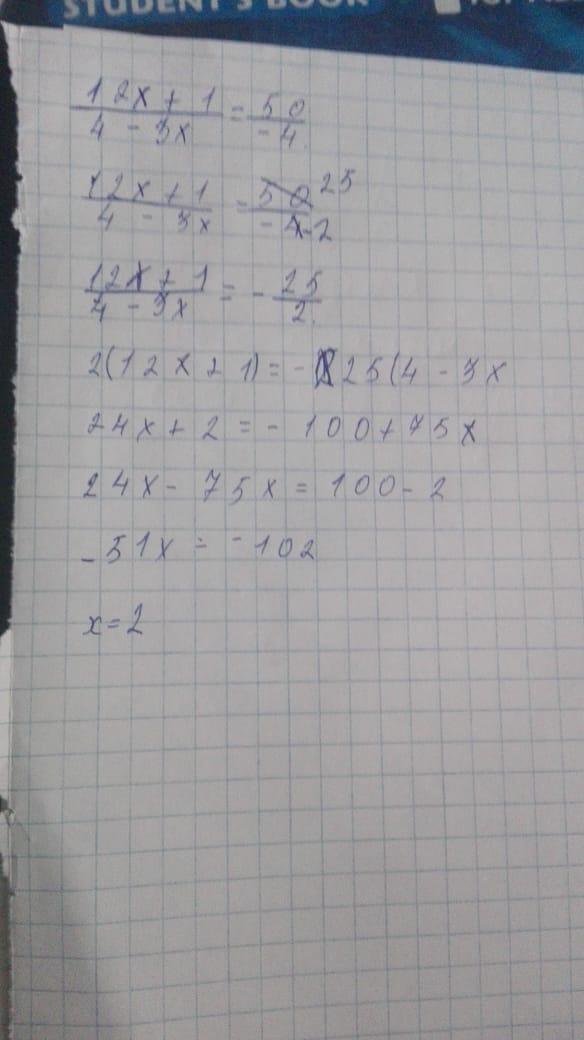 STUDENT'S BOOK
12x + 1 / 4 - 3x = 50 / -4
12x + 1 / 4 - 3x = 50 25 / -4 -2
12x + 1 / 4 - 3x = - 25 / 2
2(12x + 1) = - 25(4 - 3x
24x + 2 = - 100 + 75x
24x - 75x = 100 - 2
-51x = -102
x = 2